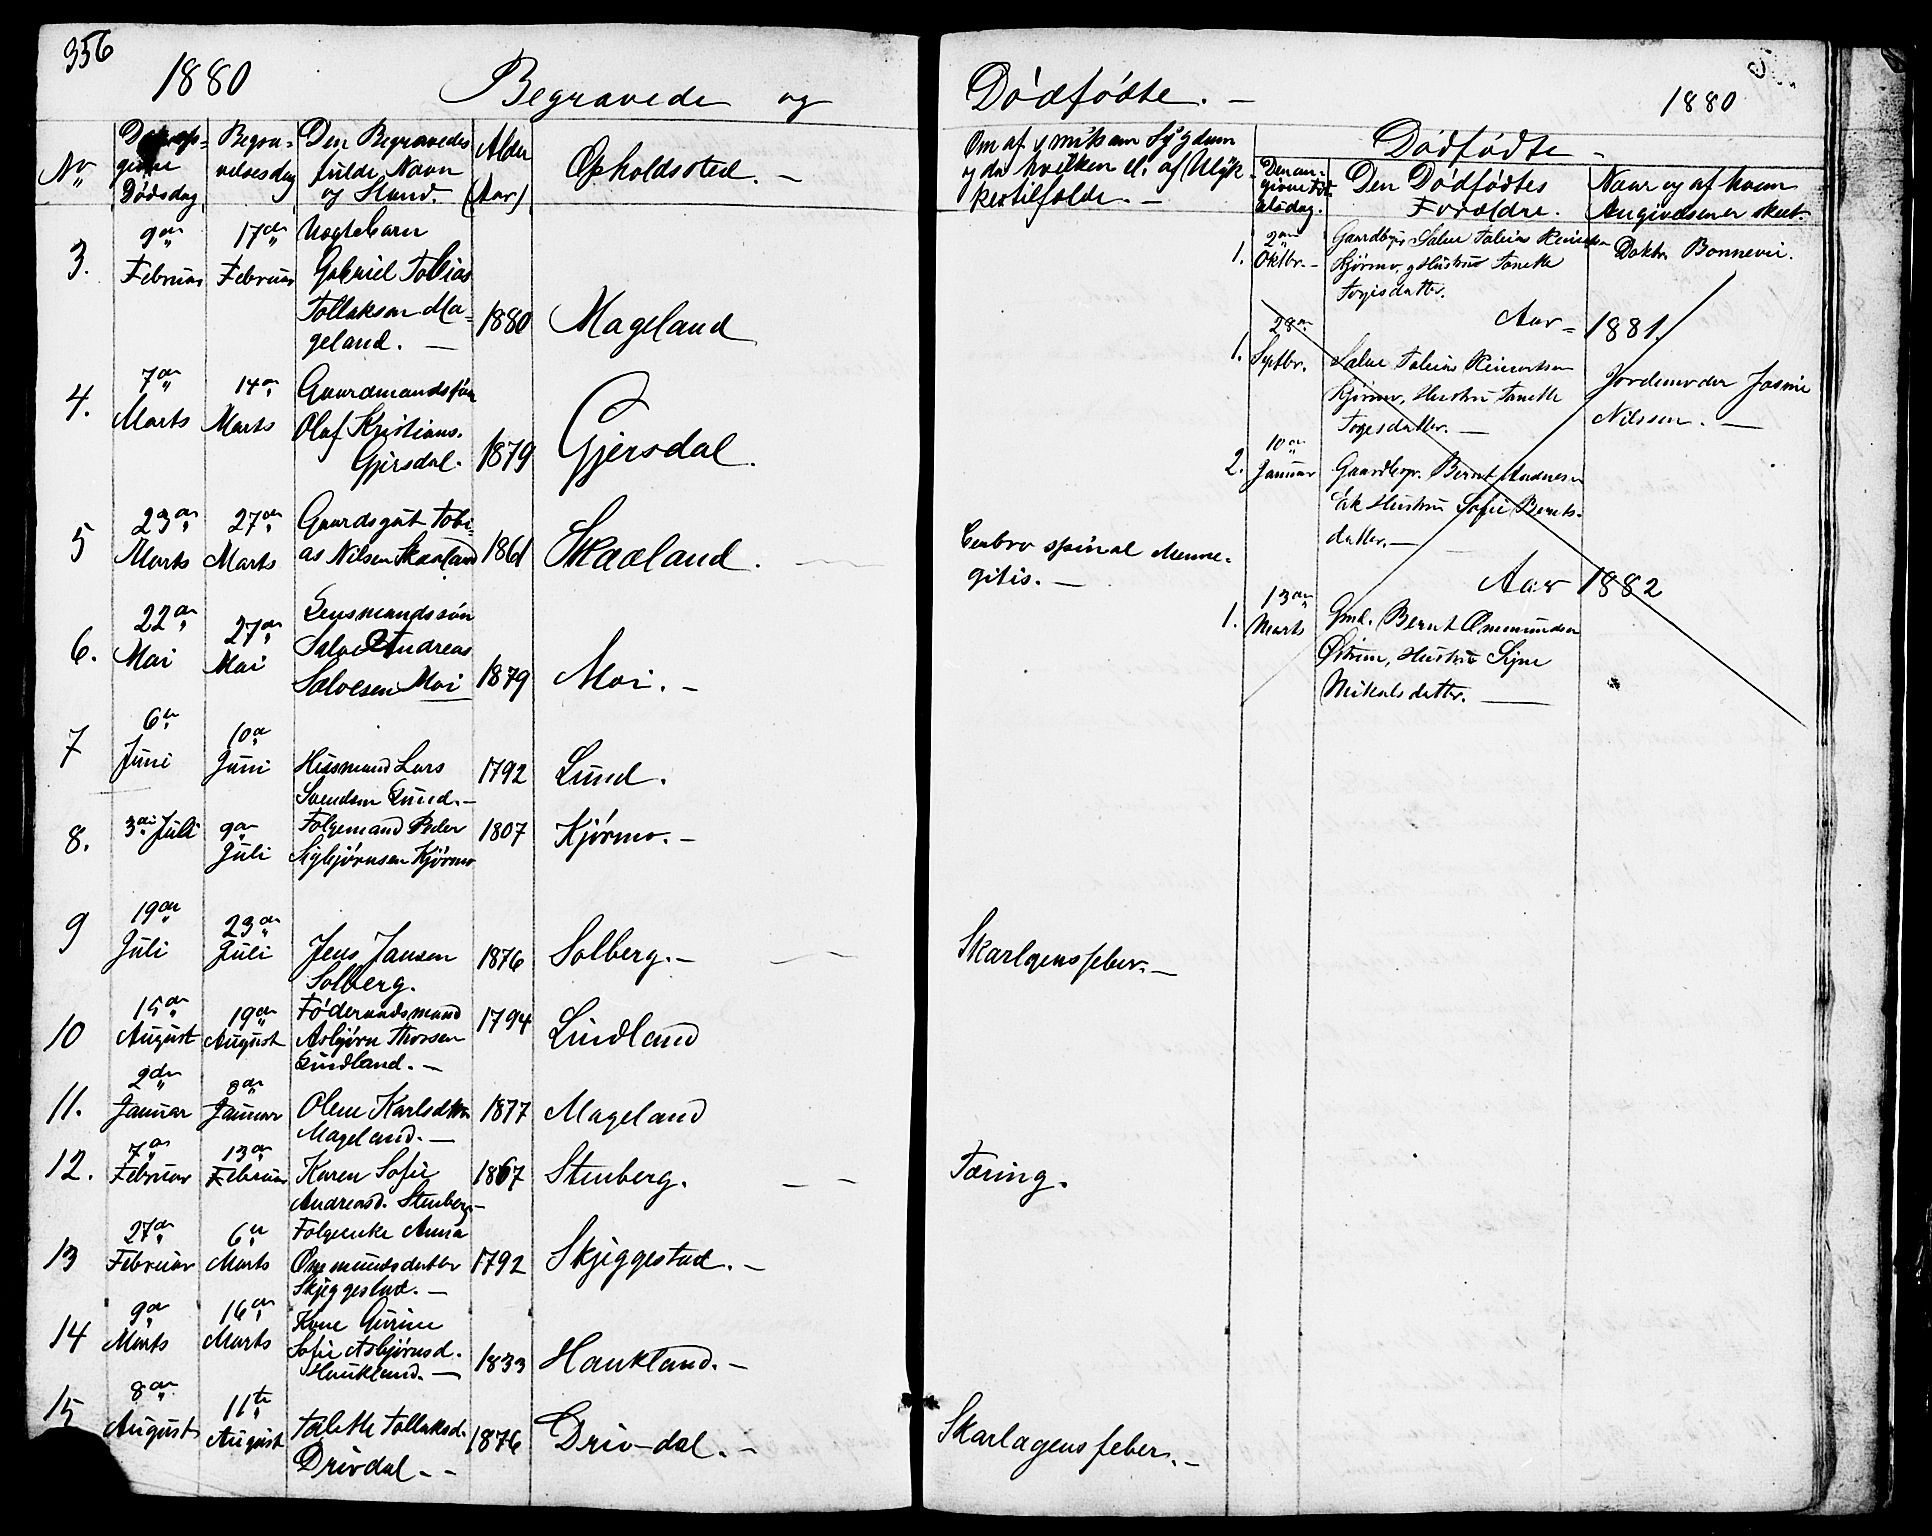 356
1880
Begravede og
No
Den opgivne Dødsdag
Begravelsesdag
Den Begravedes fulde Navn og Stand.
Alder (Aar)
Opholdssted. –
3.
9de Februar
17de Februar
Gabriel Tobias
Tollaksen Ma-
geland. –
1880
Mageland
4.
7de Marts
14de Marts
Gaardmandssøn
Olaf Kristians.
Gjersdal.
1879
Gjersdal.
5
23de Marts
27de Marts
Gaardsgut Tobi-
as Nilsen Skaaland
1861
Skaaland.
6.
22de Mai
27de Mai
Lensmandssøn
Salve Andreas
Salvesen Moi
1879
Moi. –
7
6te Juni
10de Juni
Husmand Lars
Svendsen Lund. –
1792
Lund.
8.
3die Juli
9de Juli
Følgemand Peder
Sigbjørnsen Kjørmo
1807
Kjørmo. –
9
19de Juli
23de Juli
Jens Jansen
Solberg.
1876
Solberg. –
10
15de August
19de August
Føderaadsmand
Asbjørn Thorsen
Lindland. –
1794
Lindland
11.
2den Januar
8de Januar
Olene Karlsdtr.
Mageland. –
1877
Mageland
12.
7de Februar
13de Februar
Karen Sofie
Andreasd. Stenberg –
1867
Stenberg.
13
27de Februar
6te Marts
Følgeenke Anna
Omundsdatter
Skjeggestad. –
1792
Skjeggestad. –
14
9de Marts
16de Marts
Kone Gurine
Sofie Asbjørnsd.
Haukland. –
1833
Haukland. –
15
8de August
11te August
Talette Tollaksd.
Drivdal. –
1876
Drivdal. –
Dødfødte. –
1880
Om af smitsom Sygdom
og da hvilken el. af Ulyk-
kestilfælde. –
Dødfødte –
Den angivne Fødselsdag.
Den Dødfødtes Forældre.
Naar og af hvem Angivelsen er skeet.
1.
2den Oktbr. –
Gaardbr. Salve Tobias Reinertsen
Kjørmo, og Hustru Tanette
Togesdatter.
Doktor Bonnevie.
Aar – 1881.
1.
28de Septbr.
Salve Tobias Reinertsen
Kjørmo, Hustru Tanette
Togesdatter. –
Jordemoder Josine
Nilssen. –
2.
10de Januar
Gaardbr. Bernt Andresen
Eik Hustru Sofie Bernts-
datter. –
Aar 1882
1.
13de Marts
Gmd. Bernt Ommundsen
Østrem, Hustru Signe
Mikalsdatter. –
Cerebro spinal Menne-
gitis. –
Skarlgensfeber. –
Tæring.
Skarlagensfeber. –